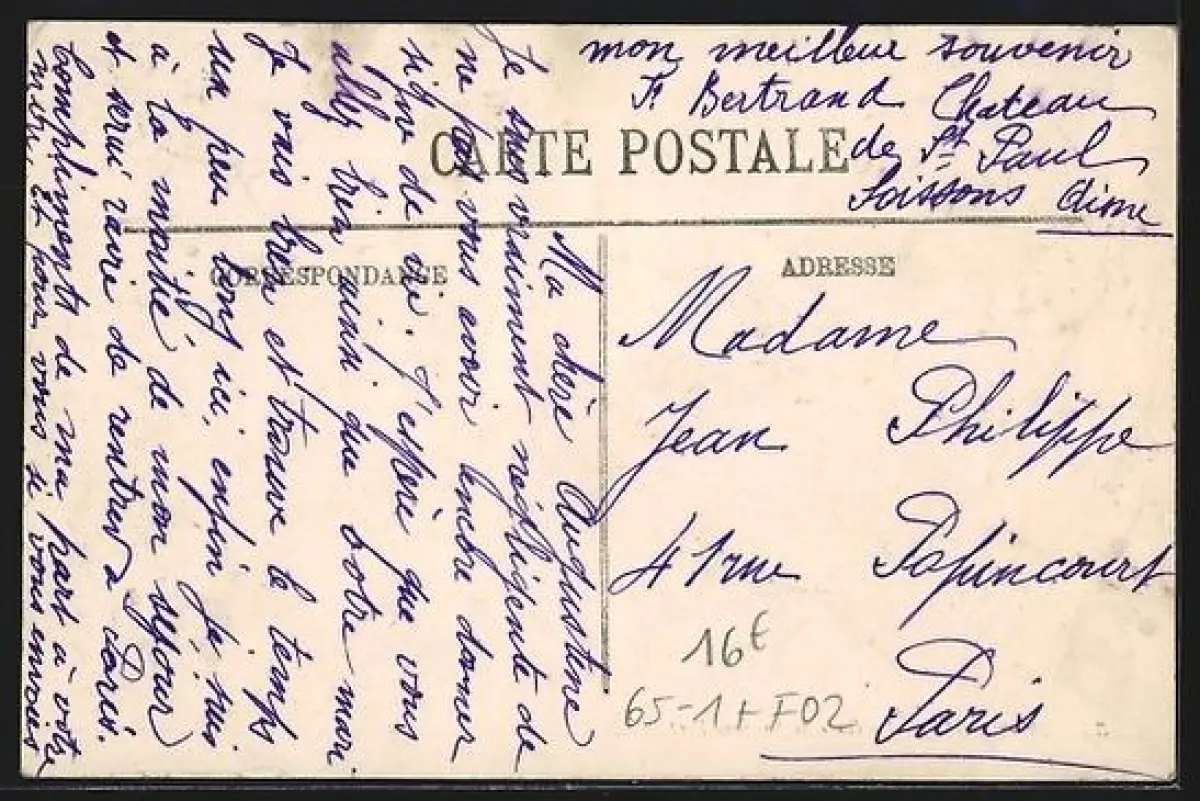 Ma chère Augustine
Je suis vraiment négligente de
ne pas vous avoir encore donner
signe de vie. J'espère que vous
allez bien ainsi que votre mari
Je vais bien et trouve le temps
un peu long ici, enfin je suis
à la moitié de mon séjour
et serui ravie de rentrer a Paris.
Compliments de ma part à votre
mère. Et pour vous si vous
mon meilleur souvenir
Bertrand Chateau
de St Paul
Soissons Aisne
CARTE POSTALE
CORRESPONDANCE
ADRESSE
Madame
Jean Philippe
41 rue Popincourt
Paris
16€
65-1+F02